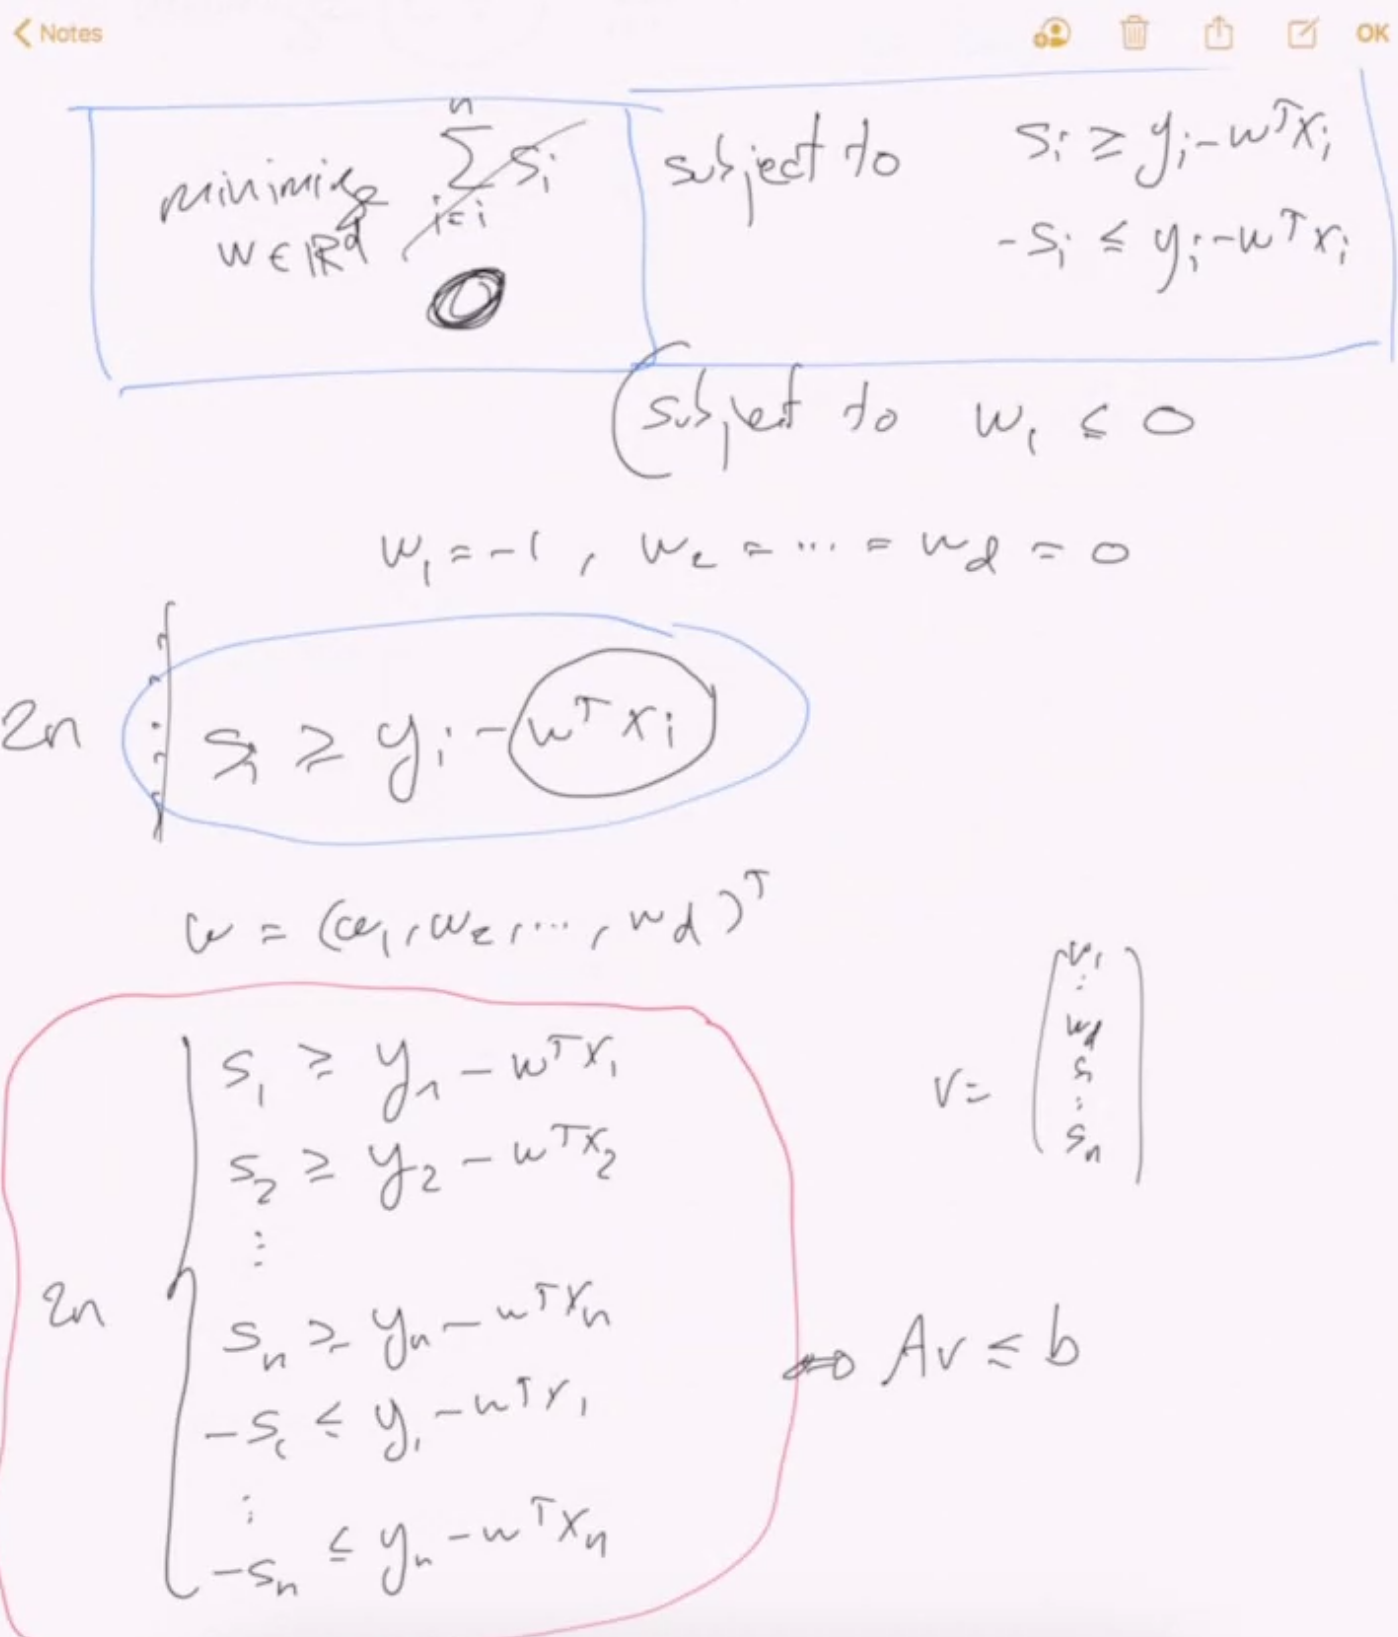 Notes OK
minimize n ∑ i=i s_i subject to s_i ≥ y_i - w^T x_i
w ∈ ℝ^d -s_i ≤ y_i - w^T x_i
0
(subject to w_1 ≤ 0
w_1 = -1, w_2 = ... = w_d = 0
2n s_i ≥ y_i - w^T x_i
w = (w_1, w_2, ..., w_d)^T
s_1 ≥ y_1 - w^T x_1
s_2 ≥ y_2 - w^T x_2
⋮
2n
s_n ≥ y_n - w^T x_n
-s_1 ≤ y_1 - w^T x_1
⋮
-s_n ≤ y_n - w^T x_n
v =
w_1
⋮
w_d
s_1
⋮
s_n
⇔ Av ≤ b